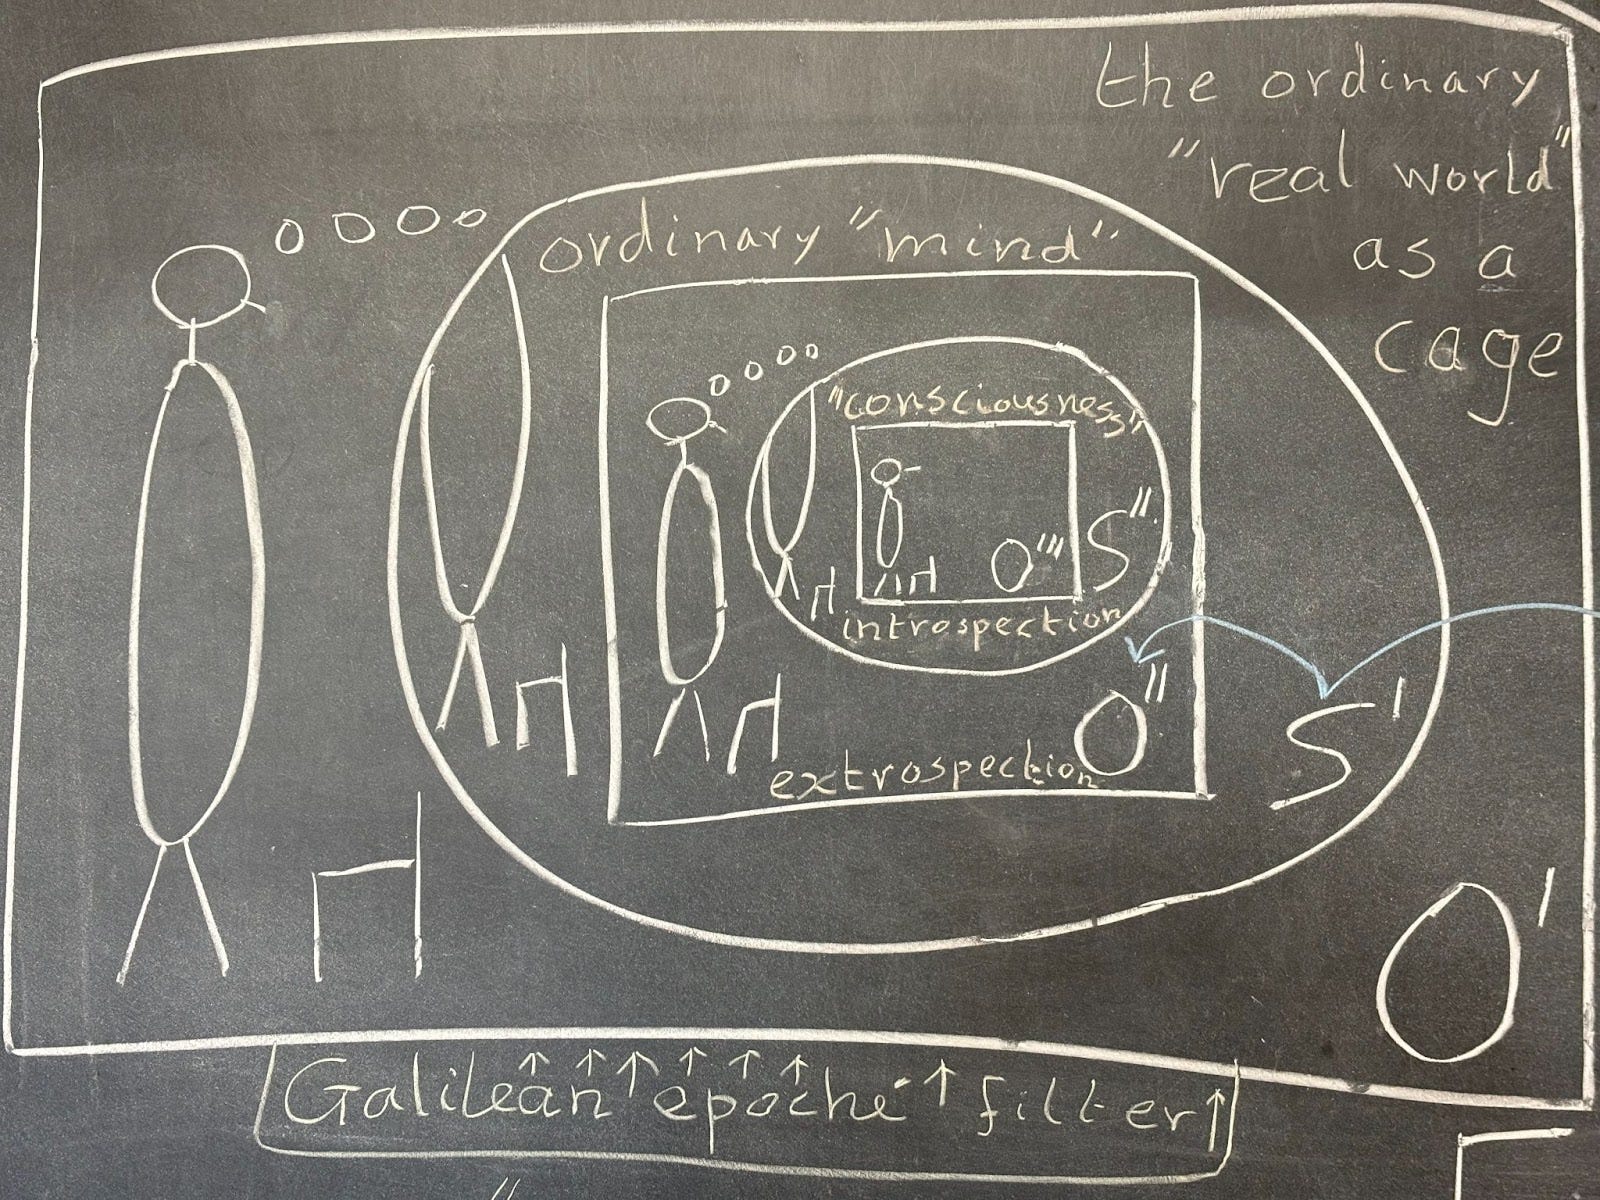 the ordinary
"real world"
as a
cage
ordinary "mind"
"consciousness"
S"
O'''
introspection
O"
extrospection
S'
O'
Galilean epoché filter